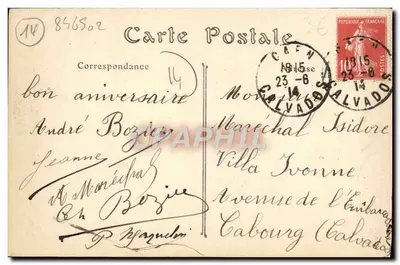 14
846502
Carte Postale
Correspondance
14
bon aniversaire
André Boziec
Jeanne
A Maréchal
Boziec
CAEN
18 15
23 - 6
14
CALVADOS
REPUBLIQUE FRANÇAISE
10
CAEN
18 15
23 - 6
14
CALVADOS
Maréchal Isidore
Villa Ivonne
Avenue de l'Embarca
Cabourg (Calvados
CPAPHIL.COM